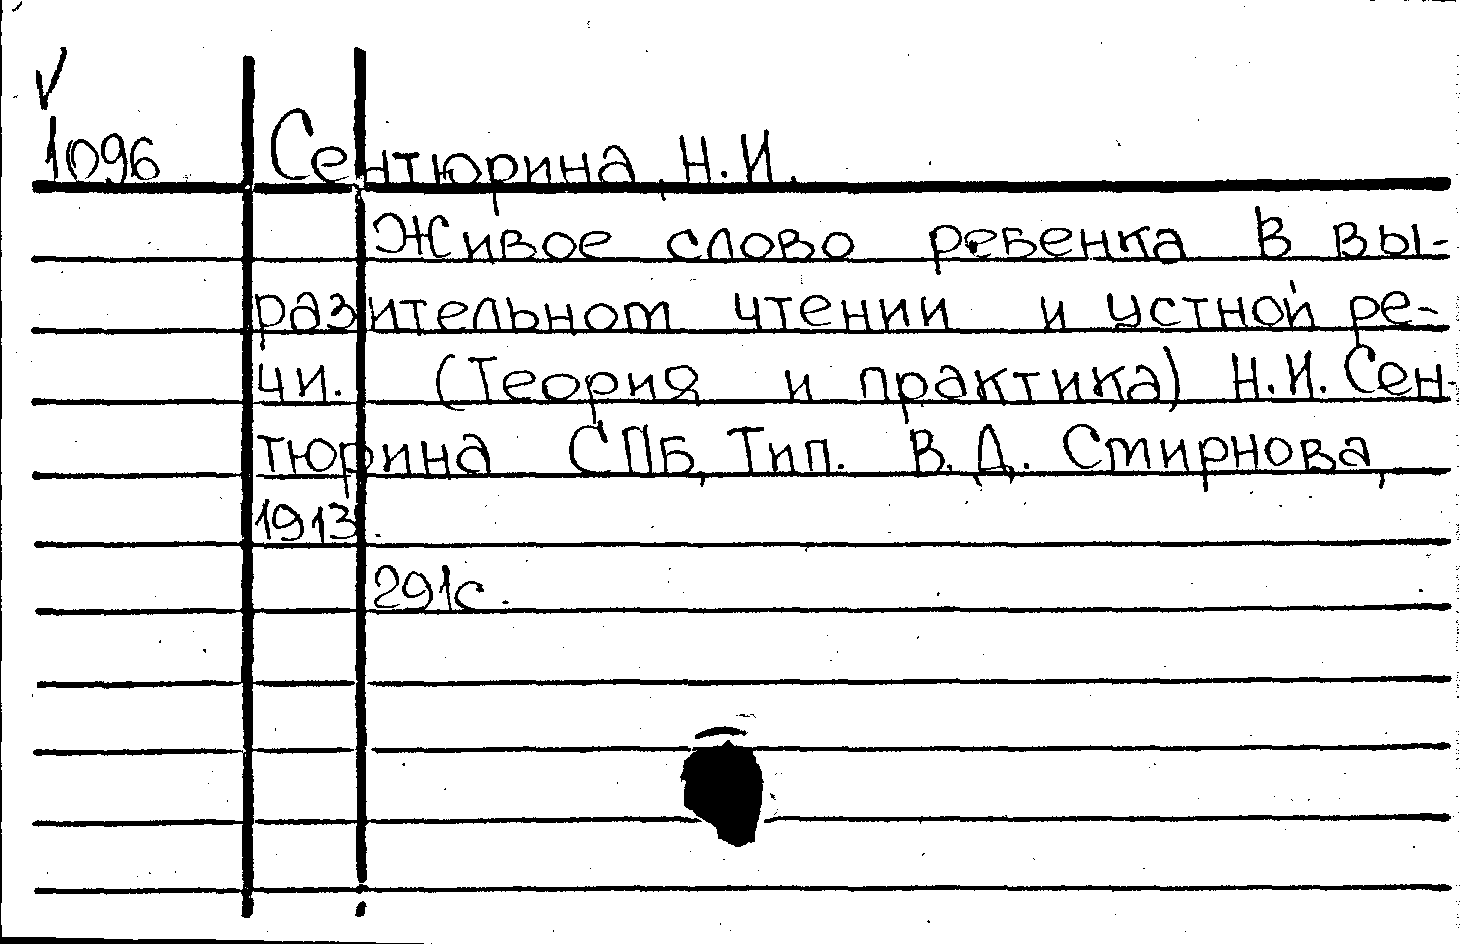 V
1096 Сентюрина, Н.И.
Живое слово ребенка в вы-
разительном чтении и устной ре-
чи. (Теория и практика) Н.И. Сен-
тюрина СПБ, Тип. В.Д. Смирнова,
1913.
291с.